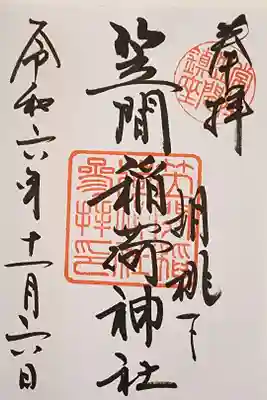 奉拝
鎮座
胡桃下
笠間稲荷神社
令和六年十一月六日